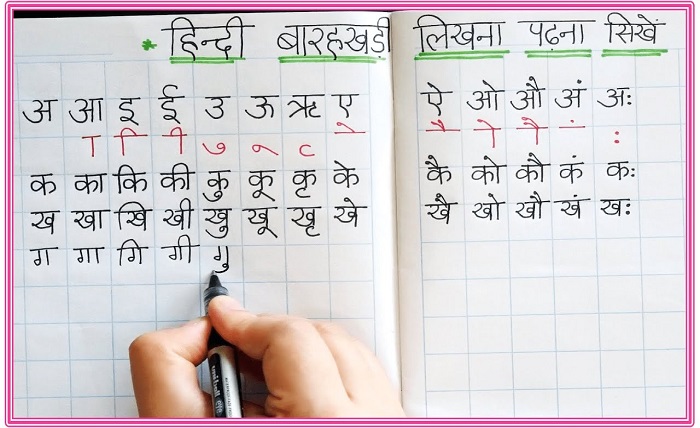 * हिन्दी बारहखड़ी लिखना पढ़ना सिखें
अ आ इ ई उ ऊ ऋ ए ऐ ओ औ अं अः
ा ि ी ु ू ृ े ै ो ौ ं ः
क का कि की कु कू कृ के कै को कौ कं कः
ख खा खि खी खु खू खृ खे खै खो खौ खं खः
ग गा गि गी गु